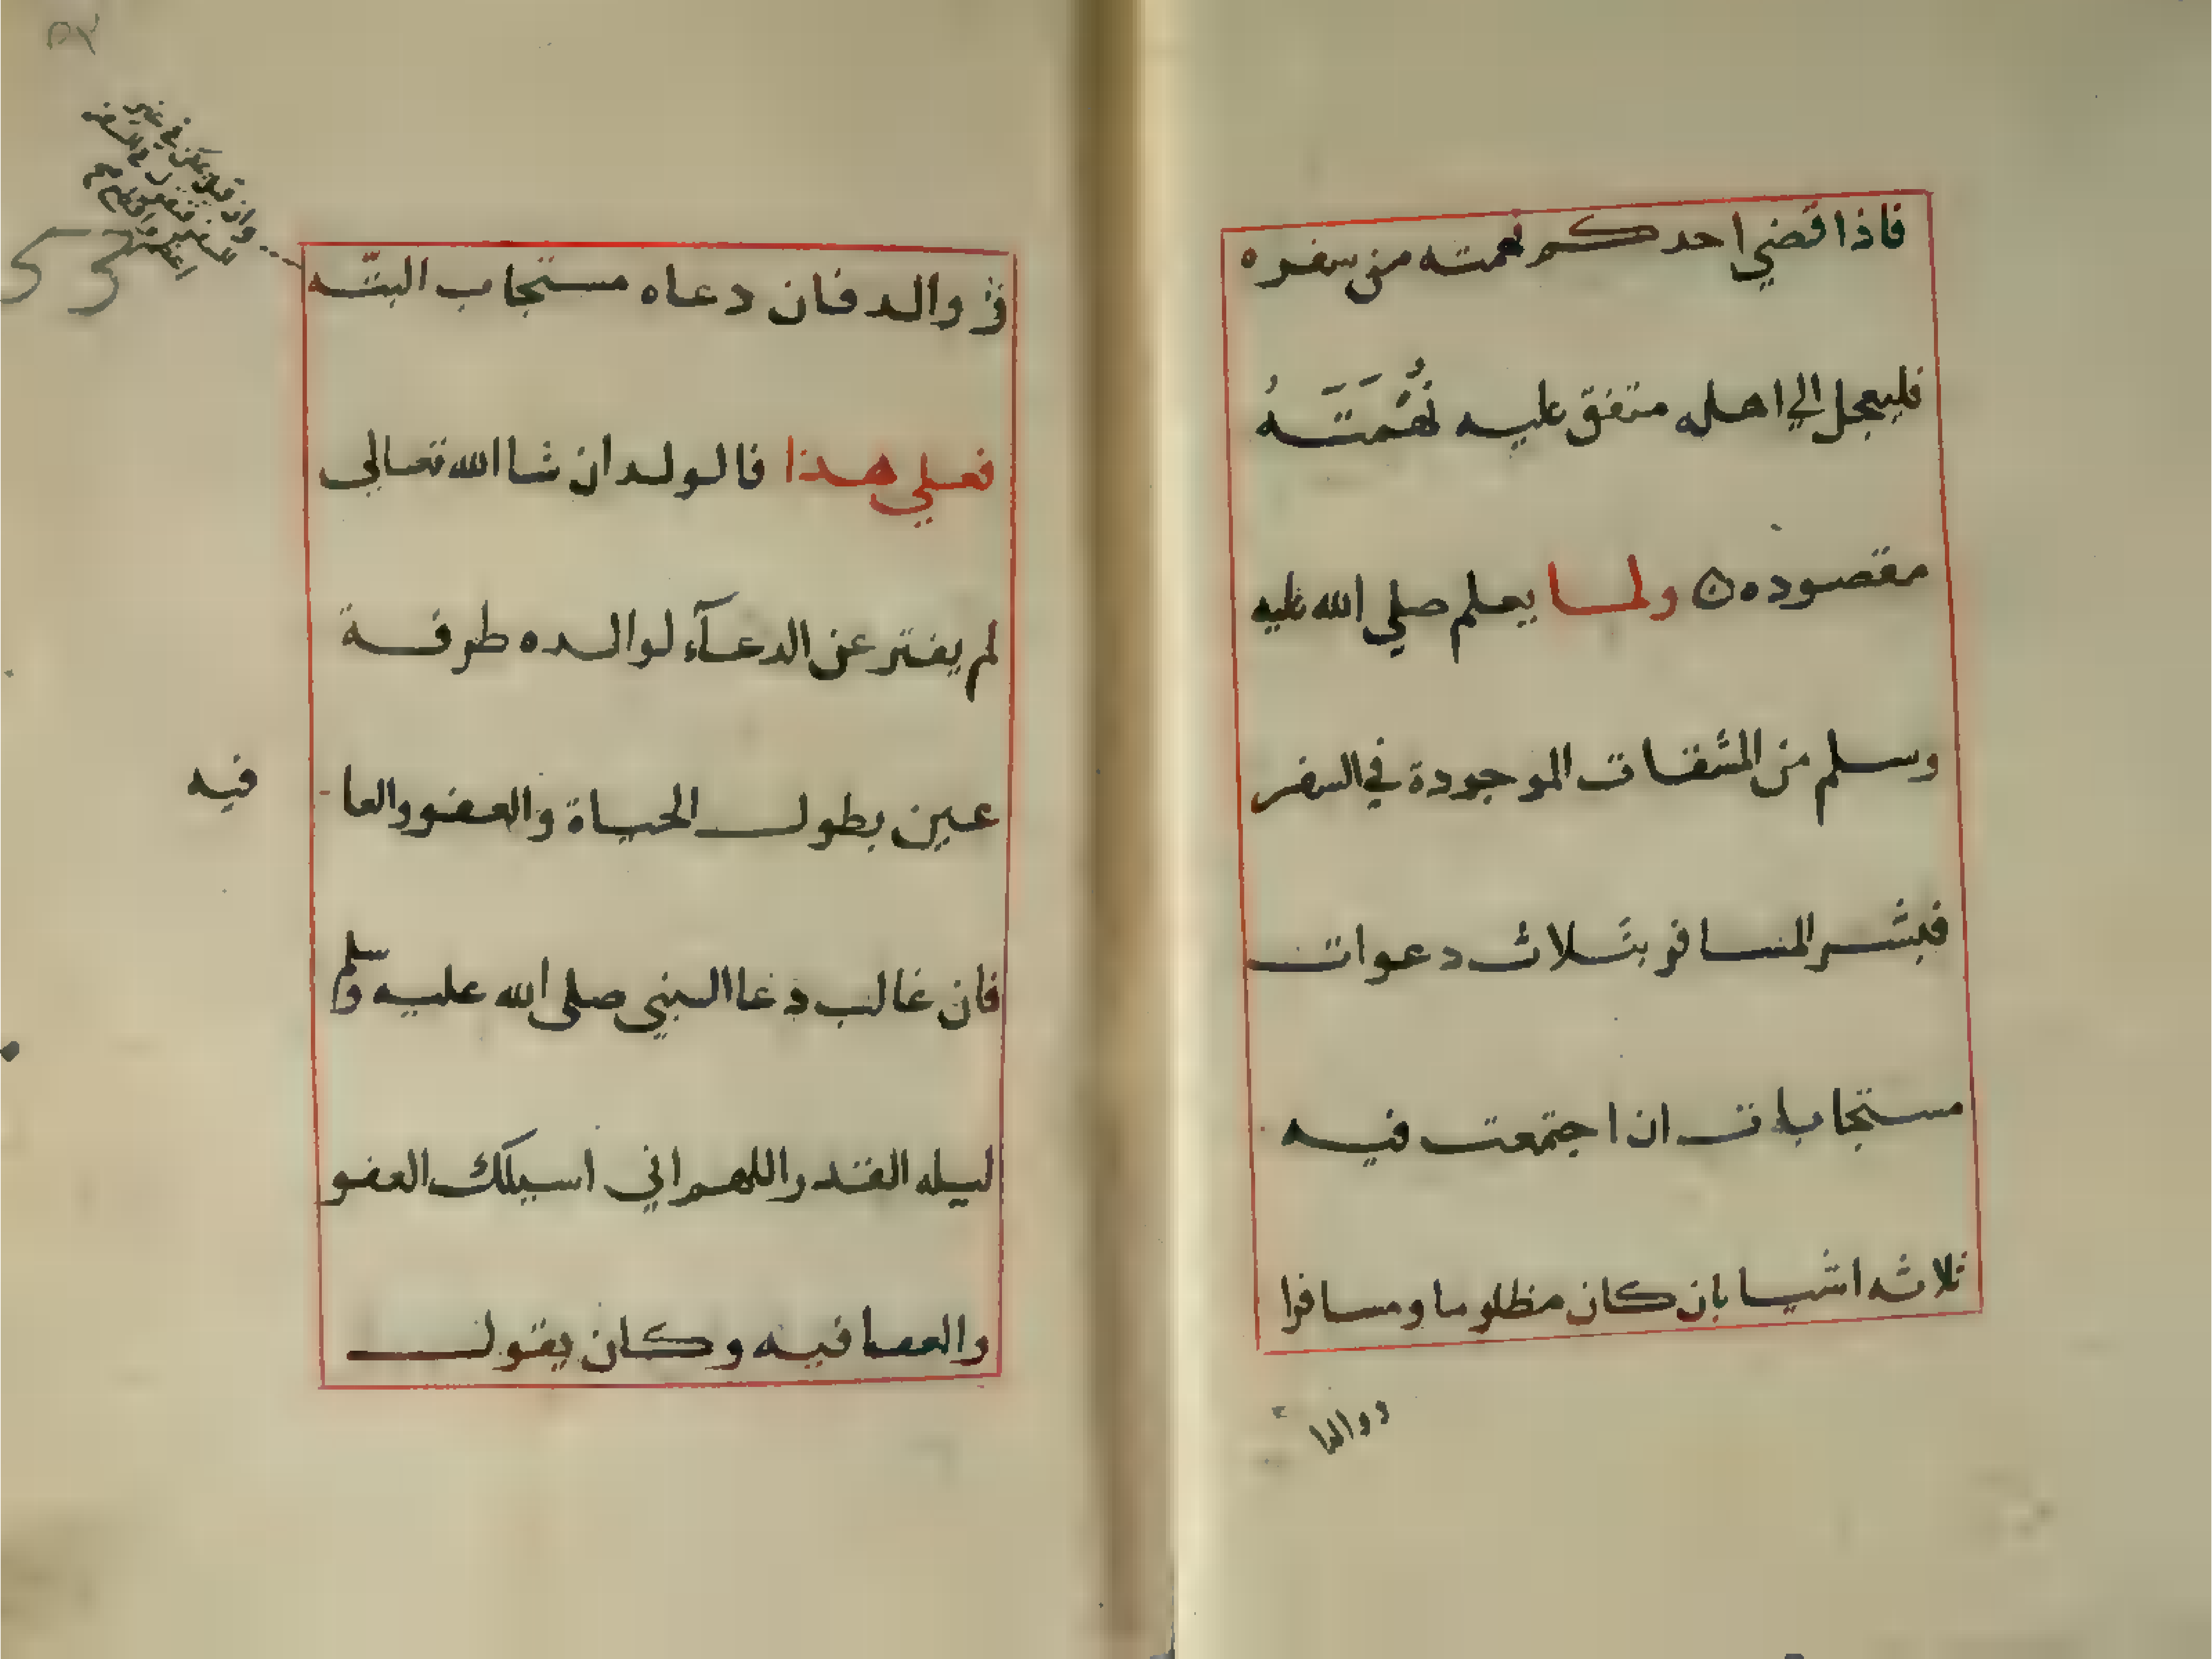 فاذا قضي احدكم نهمته من سفره
فليعجل الي اهله متفق عليه نُهْمَتَهُ
مقصوده ولما يعلم صلي الله عليه
وسلم من المشقات الموجودة في السفر
فبشر المسافر بثلاث دعوات
مستجابات ان اجتمعت فيه
ثلاثه اشيا بان كان مظلوما ومسافرا
و والد فان دعاه مستجاب البتّه
فعلي هذا فالولد ان شا الله تعالي
لم يفتر عن الدعآء لوالده طرفة
عين بطول الحياة والعفو والعا
فيه
فان غالب دعا النبي صلى الله عليه وسلم
ليله القدر اللهم اني اسيلك العفو
والعافيه وكان يقول